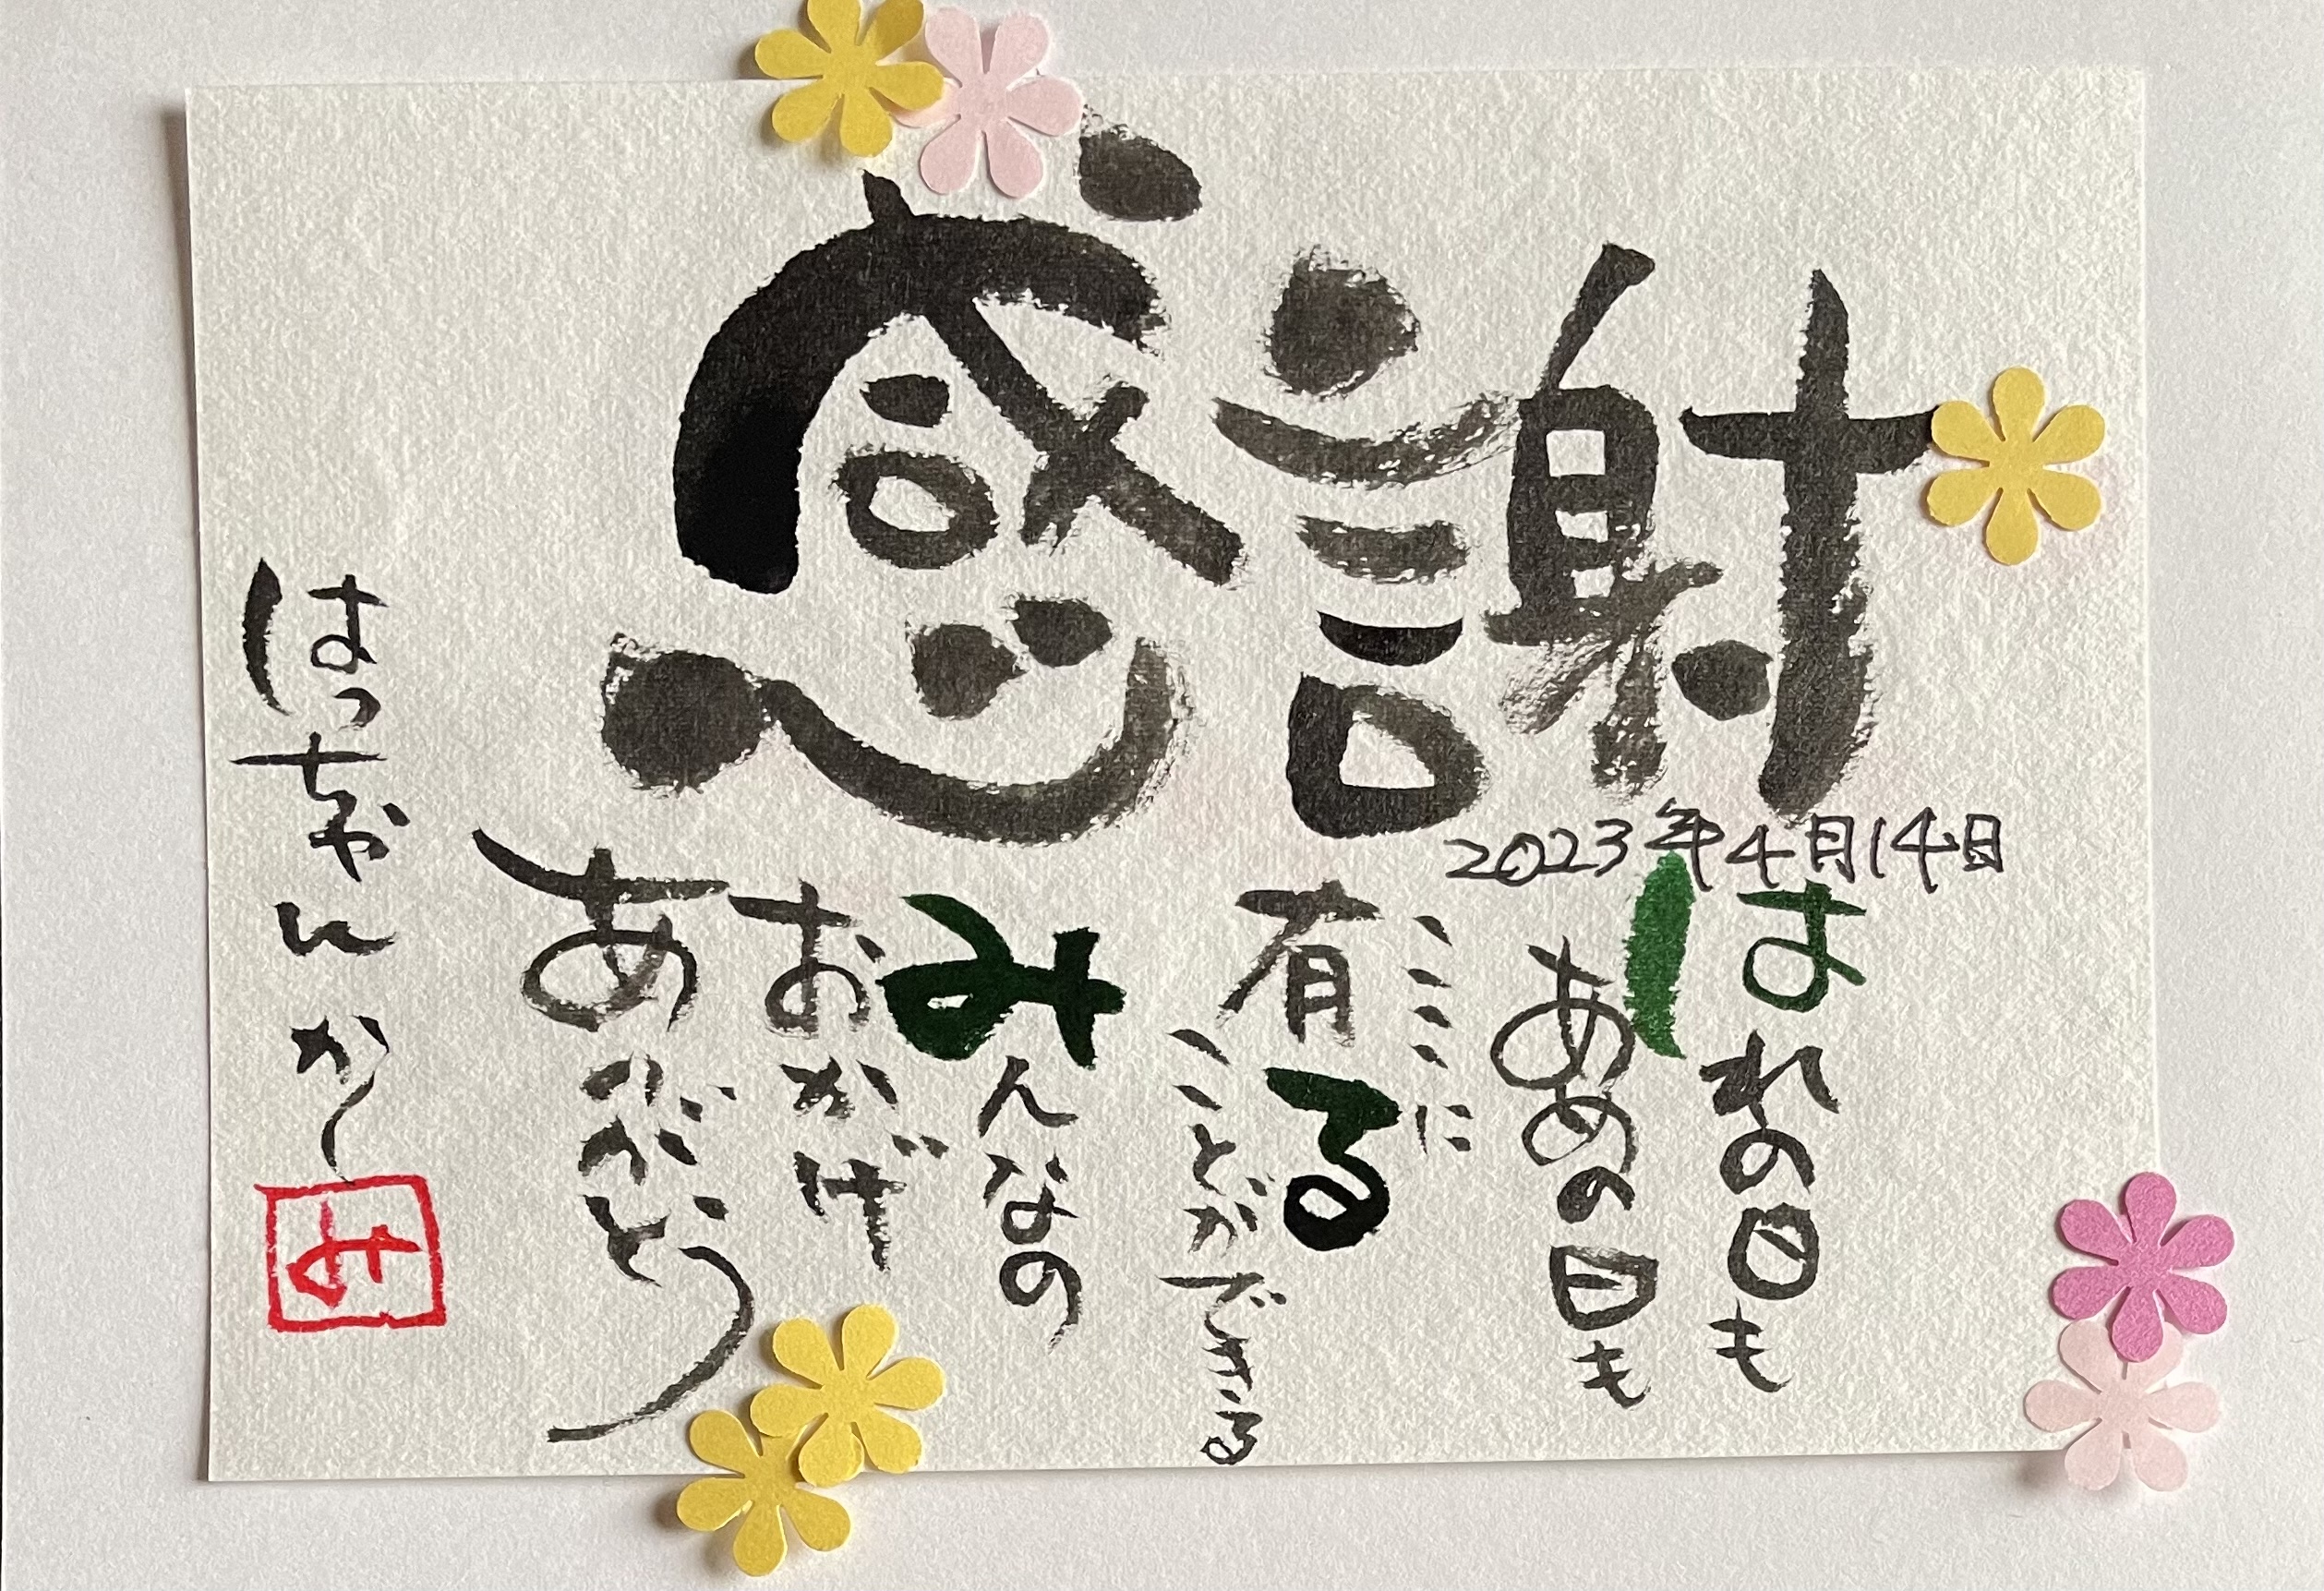 感謝
2023年4月14日
はれの日も
あめの日も
ここに
有る
ことができる
みんなの
おかげ
ありがとう
はっちゃんかく
み